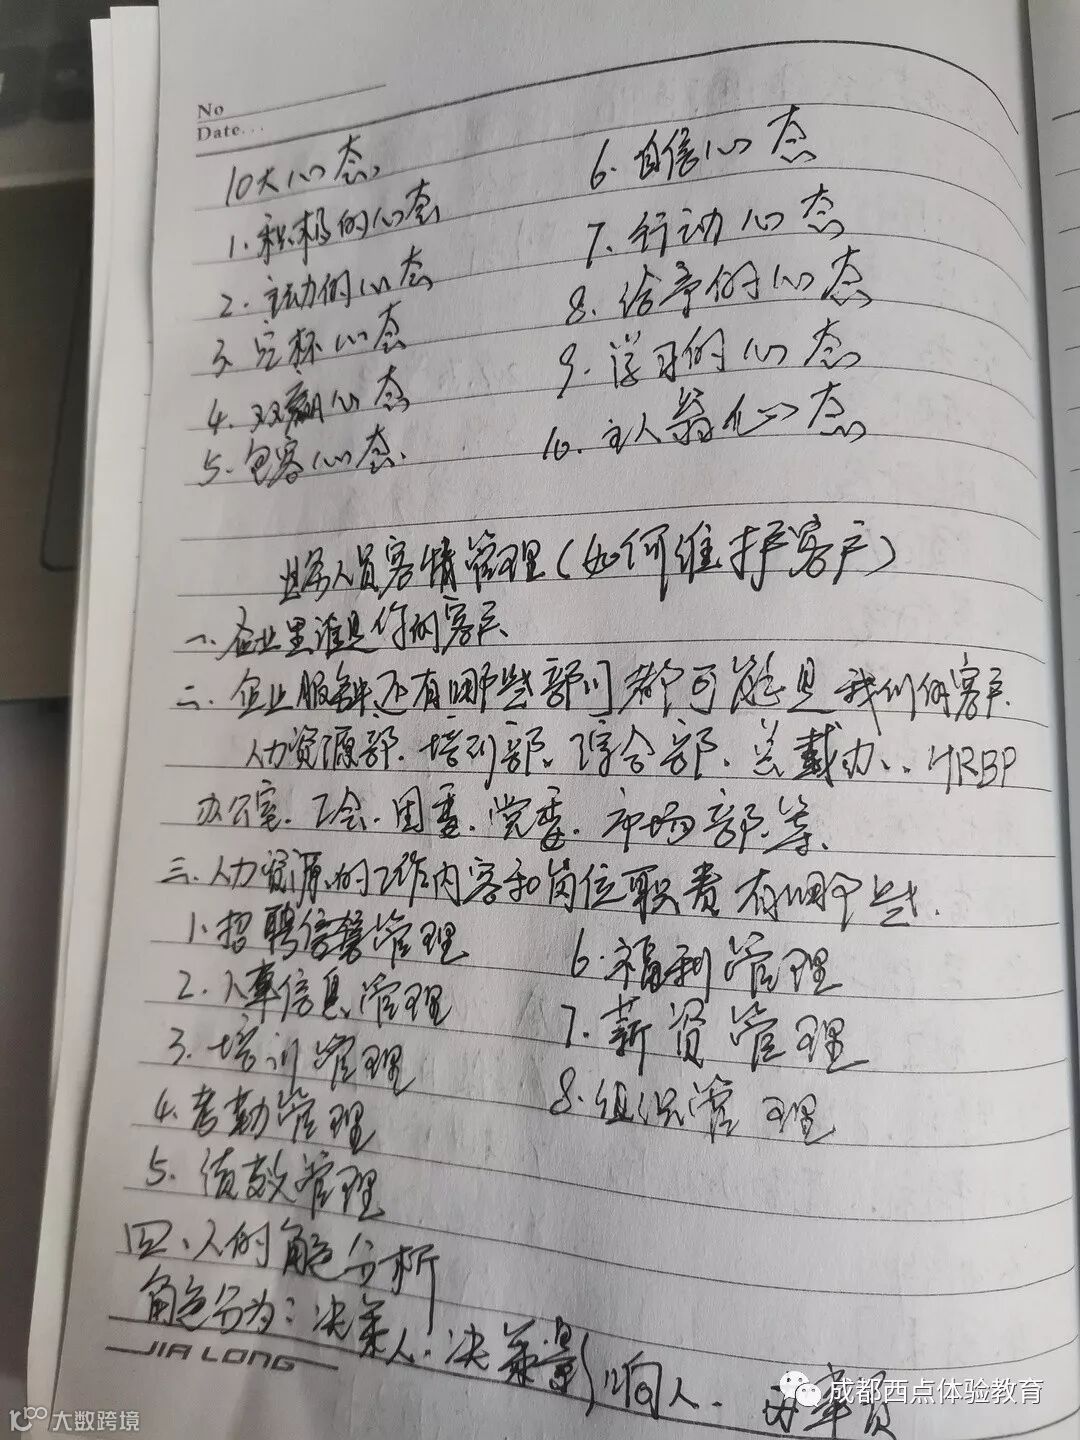 No
Date...
10大心态
1. 积极的心态
2. 主动的心态
3. 空杯心态
4. 双赢心态
5. 包容心态.
6. 自信心态
7. 行动心态
8. 给予的心态
9. 学习的心态
10. 主人翁心态
业务人员客情管理(如何维护客户)
一、企业里谁是你的客户
二、企业服务还有哪些部门都可能是我们的客户.
人力资源部、培训部、综合部、总裁办、HRBP
办公室、工会、团委、党委、市场部等、
三、人力资源的工作内容和岗位职责有哪些.
1. 招聘管理
2. 人事信息管理
3. 培训管理
4. 考勤管理
5. 绩效管理
6. 福利管理
7. 薪资管理
8. 组织管理
四、人的角色分析
角色分为:决策人、决策影响人、办事员
JIA LONG
成都西点体验教育
大数跨境